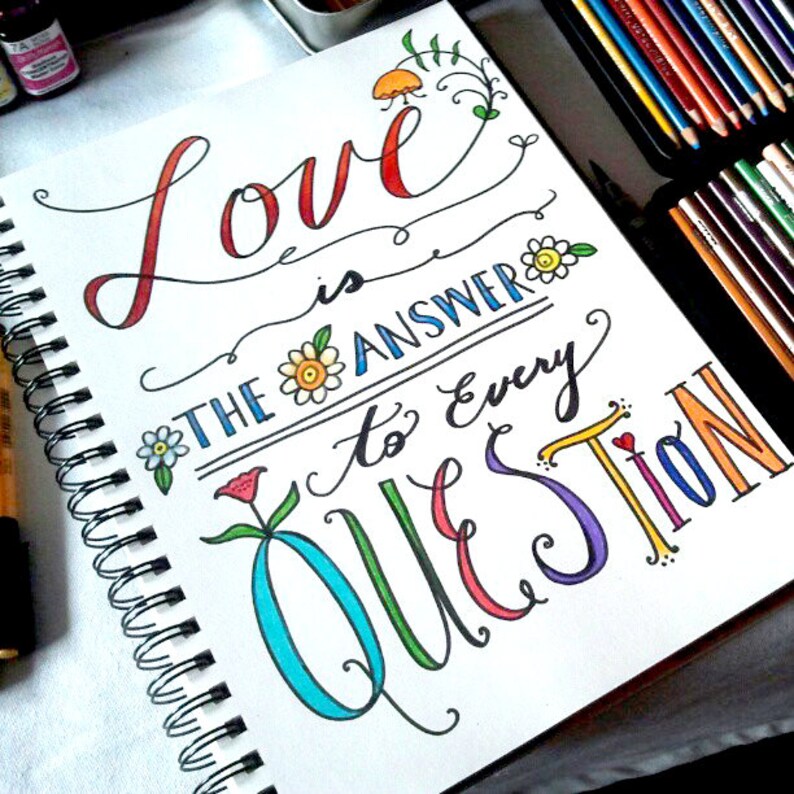 Love
is
THE ANSWER
to Every
QUESTION
7A